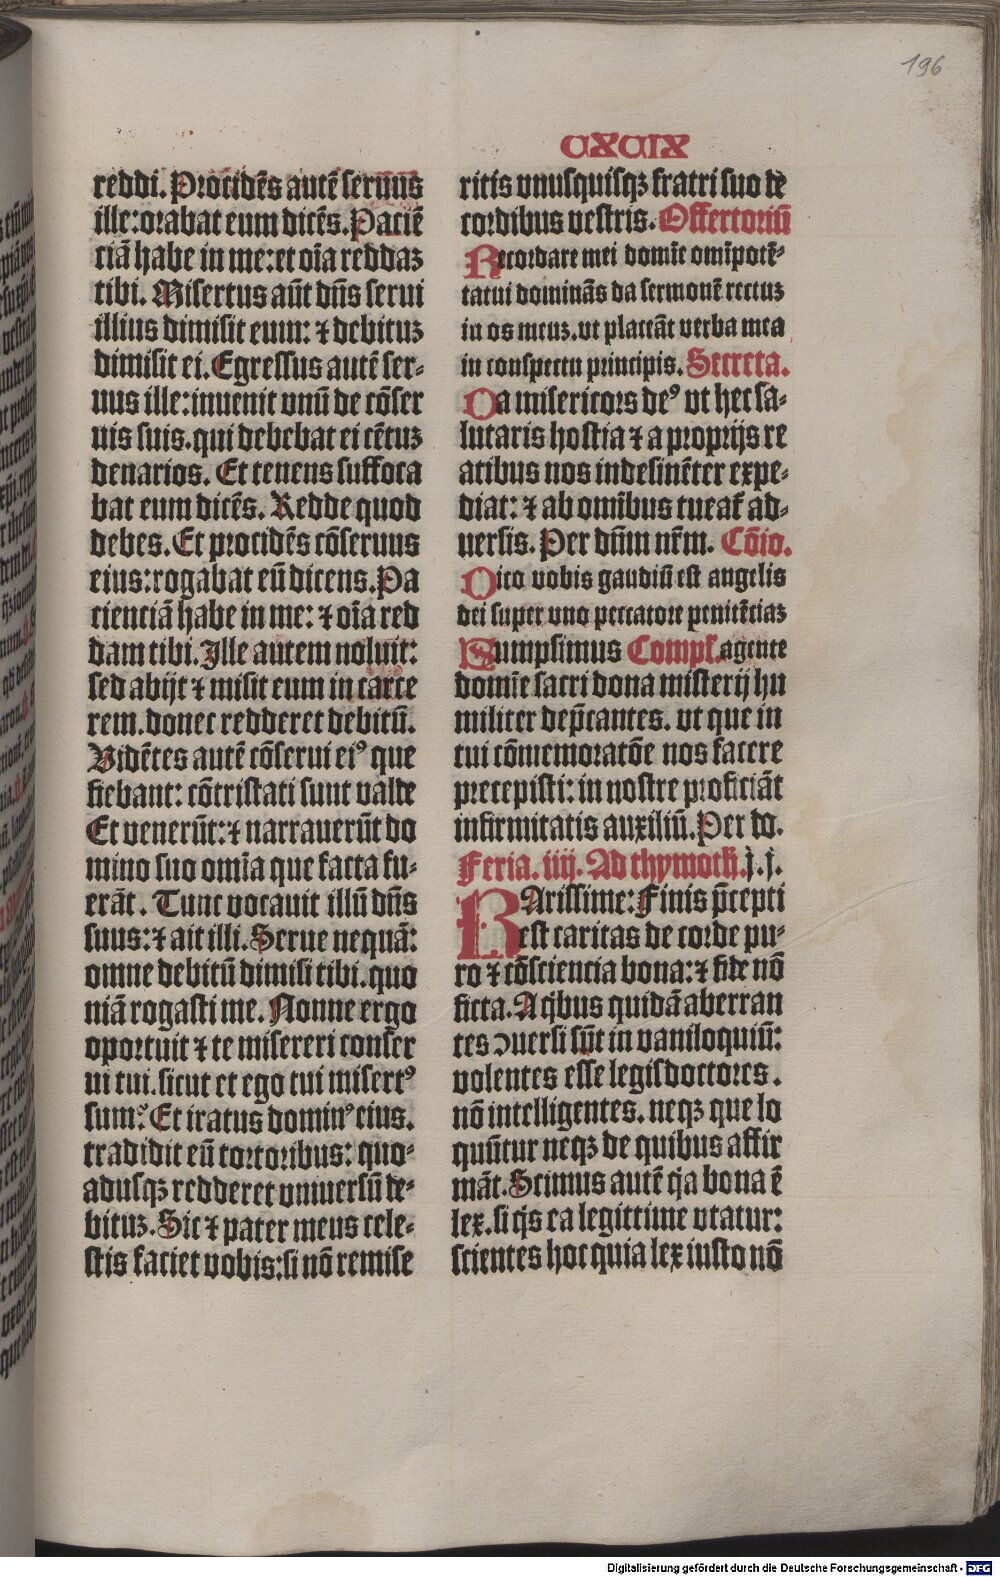 196
CXCIX
reddi. Procidēs autē seruus
ille: orabat eum dicēs. Paciē
ciā habe in me: et oīa reddaꝫ
tibi. Misertus aūt dn̄s serui
illius dimisit eum: ⁊ debituꝫ
dimisit ei. Egressus autē ser-
uus ille: inuenit vnū de cōser
uis suis. qui debebat ei cētuꝫ
denarios. Et tenens suffoca
bat eum dicēs. Redde quod
debes. Et procidēs cōseruus
eius: rogabat eū dicens. Pa
cienciā habe in me: ⁊ oīa red
dam tibi. Ille autem noluit:
sed abijt ⁊ misit eum in carce
rem. donec redderet debitū.
Vidētes autē cōserui eiꝰ que
fiebant: cōtristati sunt valde
Et venerūt: ⁊ narrauerūt do
mino suo omīa que facta fu-
erāt. Tunc vocauit illū dn̄s
suus: ⁊ ait illi. Serue nequā:
omne debitū dimisi tibi. quo
niā rogasti me. Nonne ergo
oportuit ⁊ te misereri conser
ui tui. sicut et ego tui misertꝰ
sum? Et iratus dominꝰ eius.
tradidit eū tortoribus: quo-
adusqꝫ redderet vniuersū de-
bituꝫ. Sic ⁊ pater meus cele-
stis faciet vobis: si nō remise
ritis vnusquisqꝫ fratri suo de
cordibus vestris. Offertoriū
Recordare mei domīe omīpotē-
tatui dominās da sermonē rectuꝫ
in os meuꝫ. vt placeāt verba mea
in conspectu principis. Secreta.
Da misericors deꝰ vt hec sa-
lutaris hostia ⁊ a proprijs re
atibus nos indesinēter expe-
diat: ⁊ ab omībus tueat᷑ ad-
uersis. Per dn̄m nr̄m. Cōio.
Dico vobis gaudiū est angelis
dei super vno peccatore penitēciaꝫ
Sumpsimus Compl᷑. agente
domīe sacri dona misterij hu
militer dep̄cantes. vt que in
tui cōmemoratōe nos facere
precepisti: in nostre proficiāt
infirmitatis auxiliū. Per do.
Feria. iiij. Ad thymoth̄. j. j.
KArissime: Finis p̄cepti
est caritas de corde pu-
ro ⁊ cōsciencia bona: ⁊ fide nō
ficta. A qͥbus quidā aberran
tes ↄuersi sūt in vaniloquiū:
volentes esse legisdoctores.
nō intelligentes. neqꝫ que lo
quūtur neqꝫ de quibus affir
māt. Scimus autē qͥa bona ē
lex. si qͥs ea legittime vtatur:
scientes hoc quia lex iusto nō
Digitalisierung gefördert durch die Deutsche Forschungsgemeinschaft - DFG